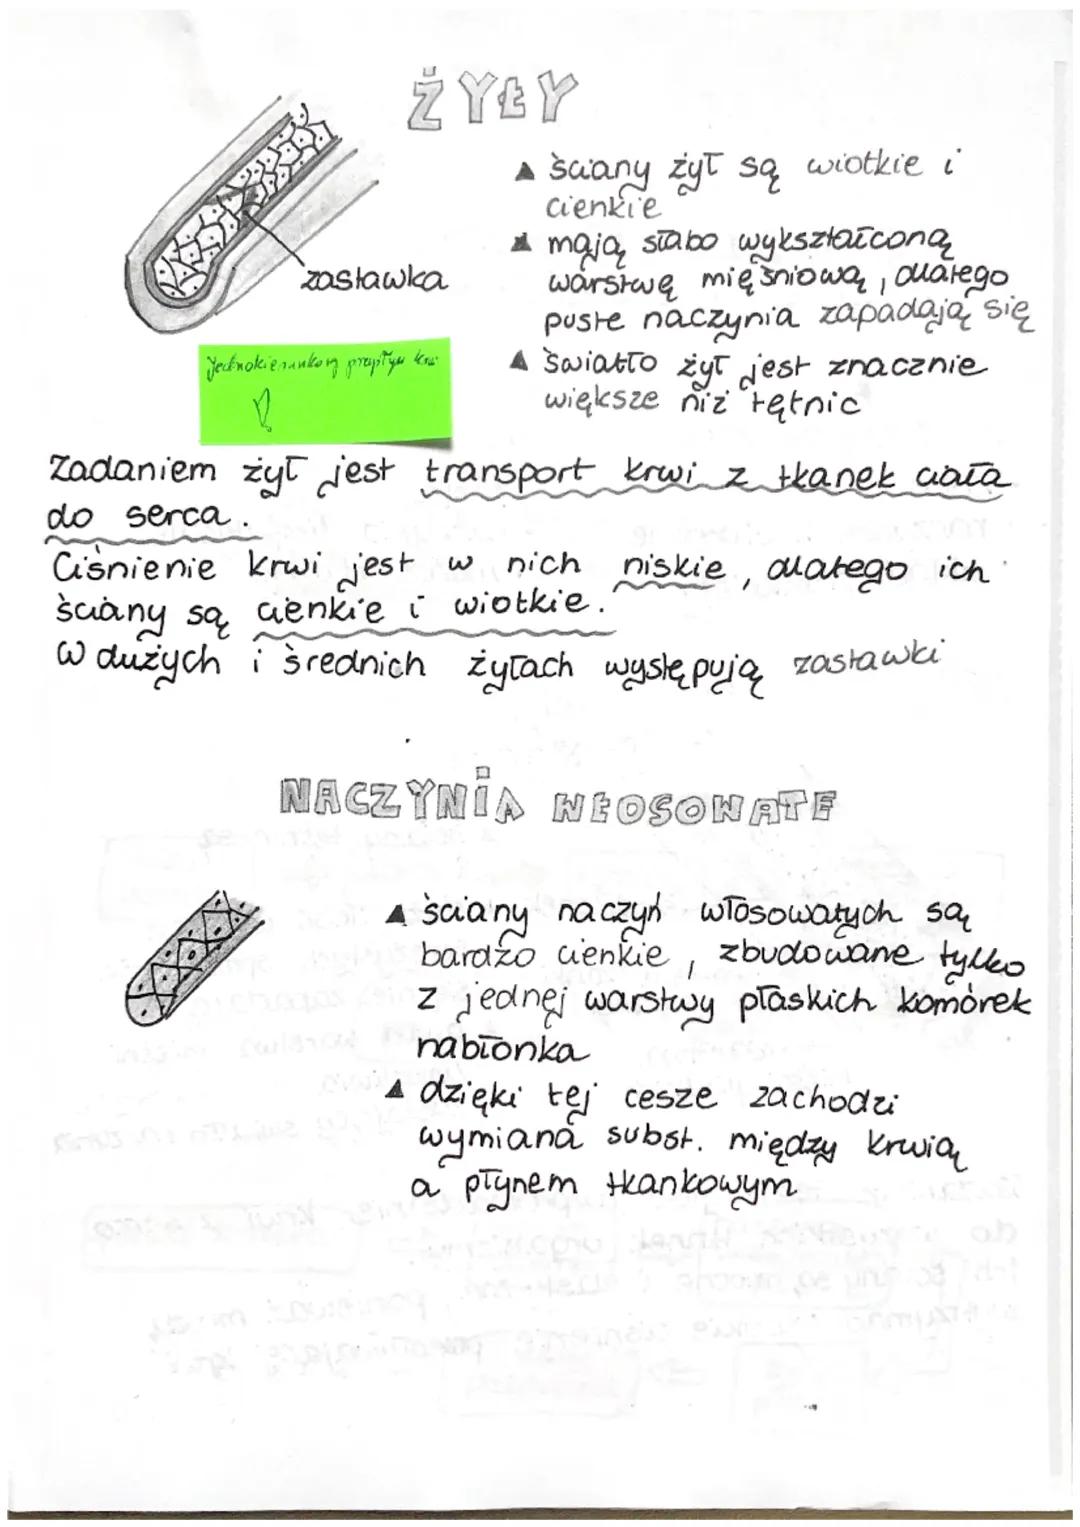 ŻYŁY
▲ ściany żył są wiotkie i
cienkie
▲ mają słabo wykształconą
warstwę mięśniową, dlatego
puste naczynia zapadają się
▲ światło żył jest znacznie
większe niż tętnic
zastawka
jednokierunkowy przepływ krwi
Zadaniem żył jest transport krwi z tkanek ciała
do serca.
Ciśnienie krwi jest w nich niskie, dlatego ich
ściany są cienkie i wiotkie.
W dużych i średnich żyłach występują zastawki
NACZYNIA WŁOSOWATE
▲ ściany naczyń włosowatych są
bardzo cienkie, zbudowane tylko
z jednej warstwy płaskich komórek
nabłonka
▲ dzięki tej cesze zachodzi
wymiana subst. między krwią
a płynem tkankowym